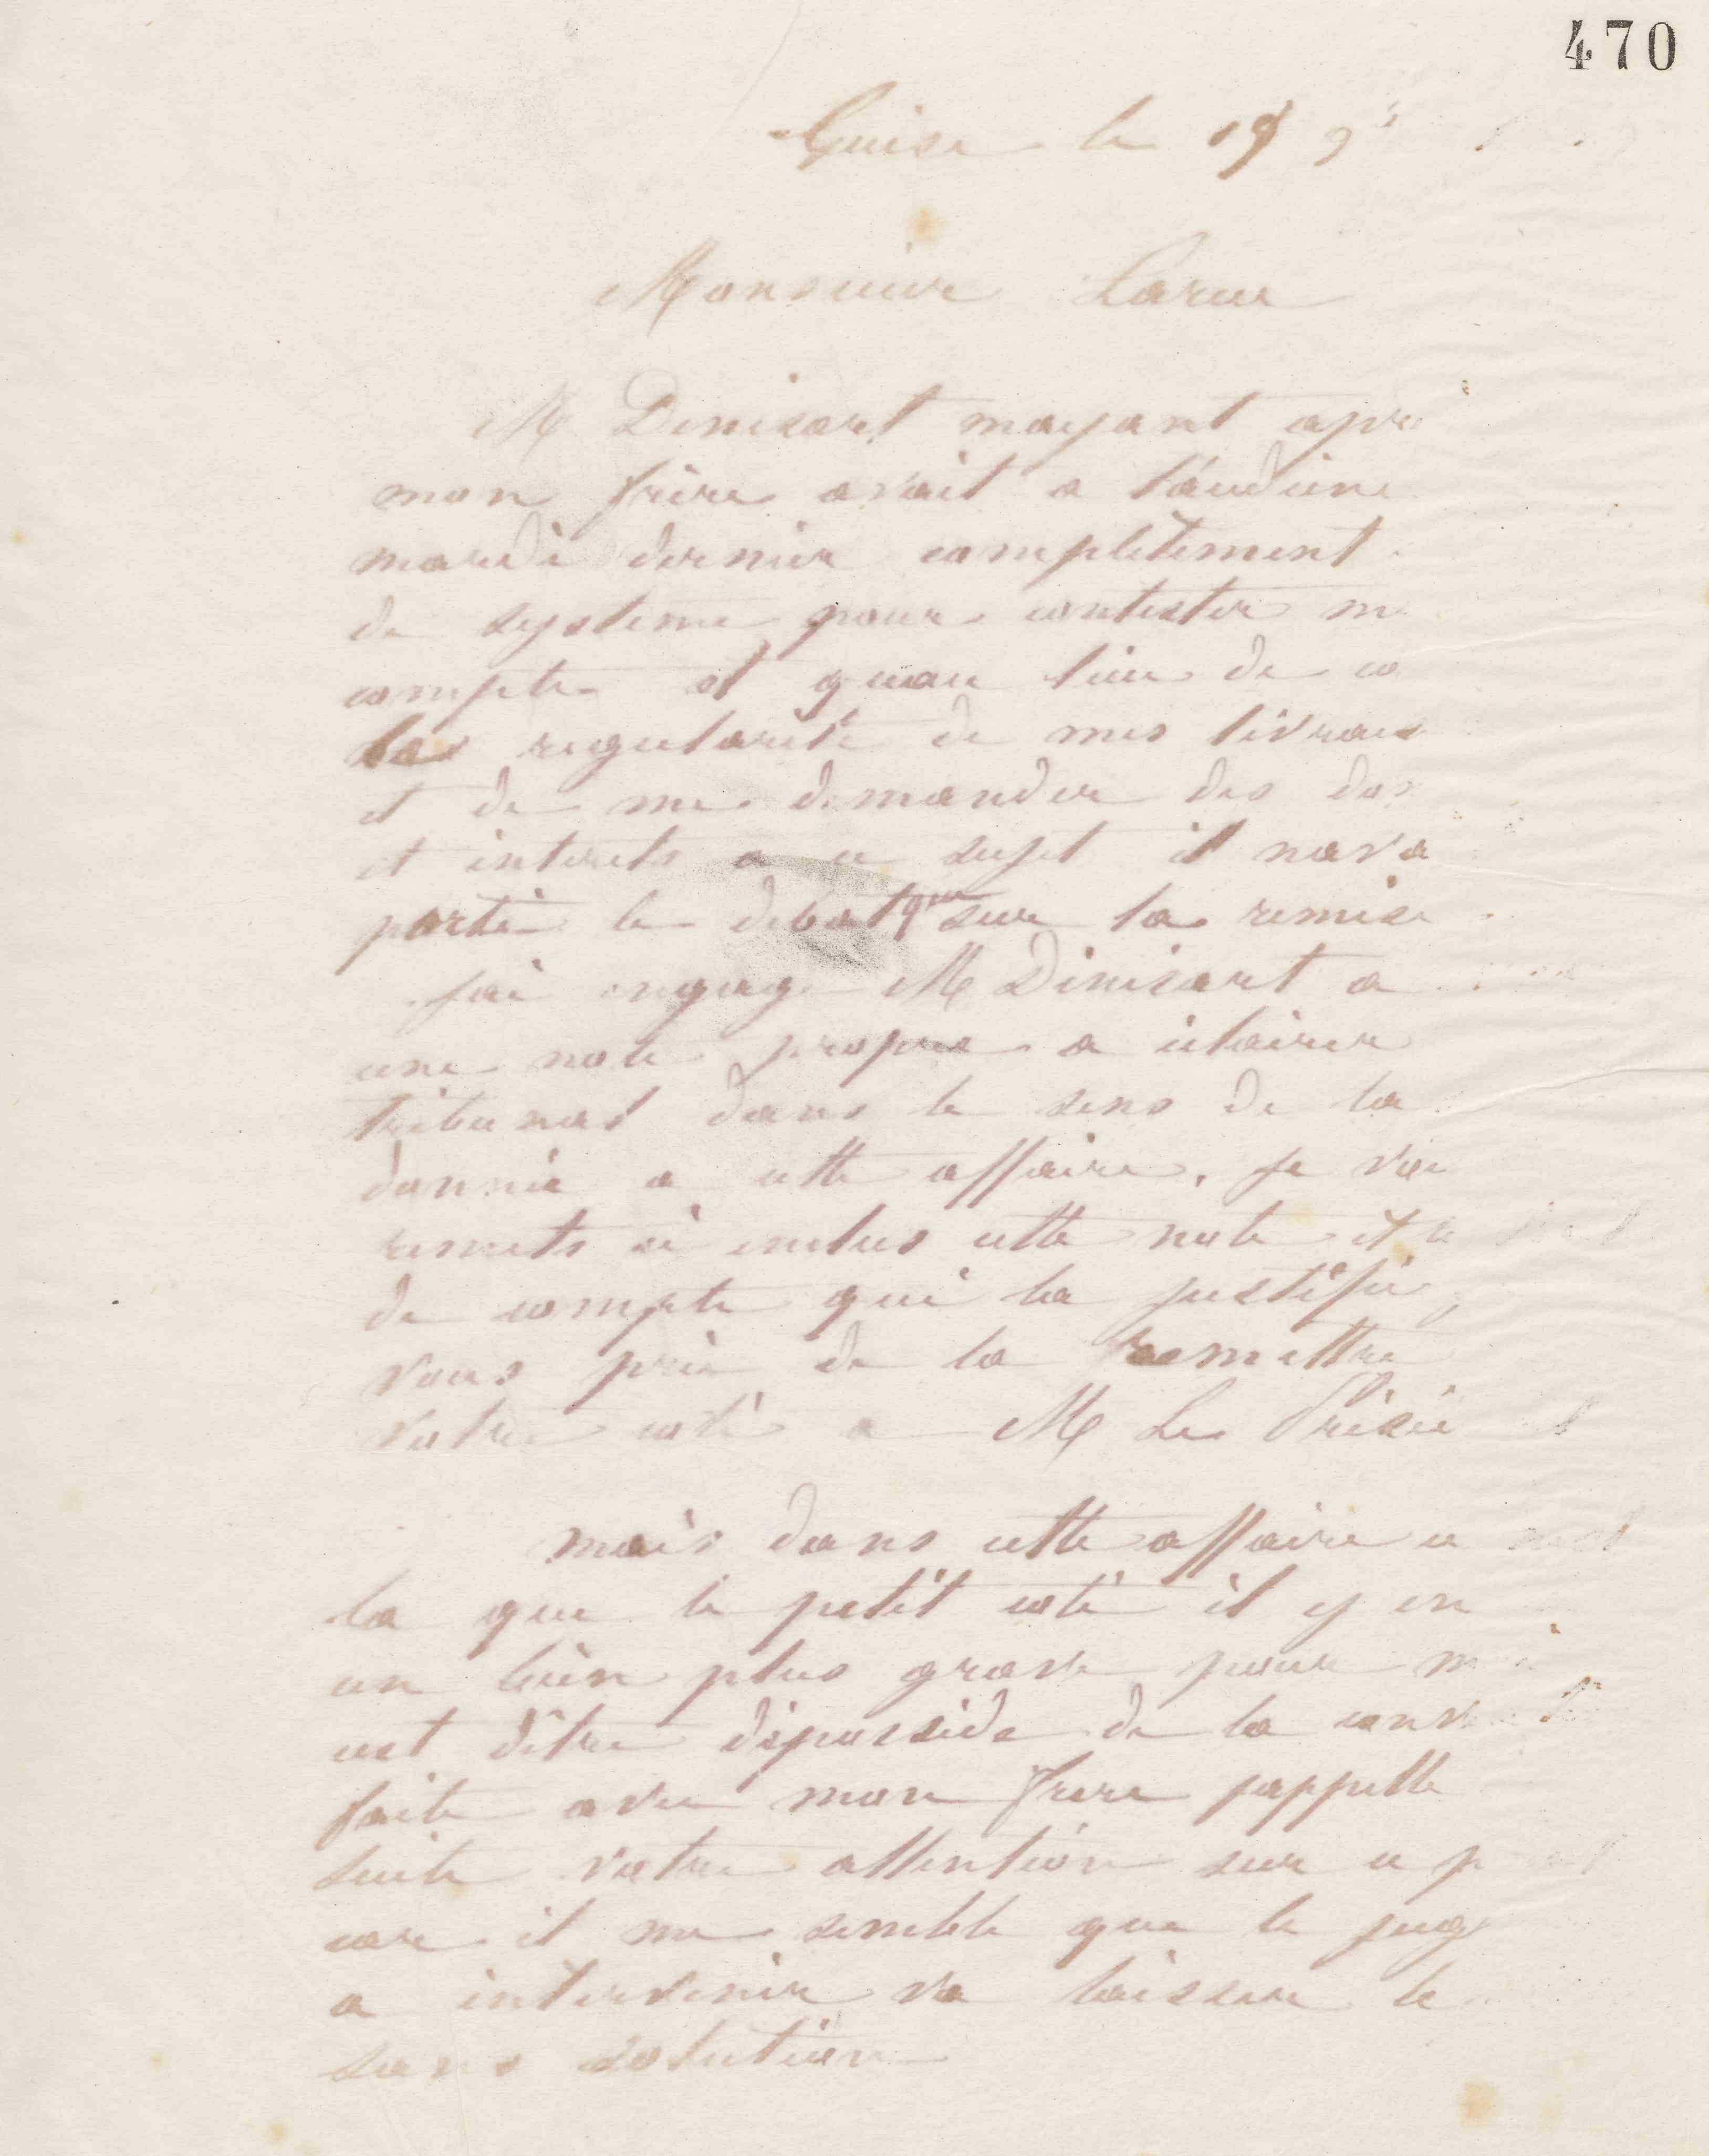 470
Guise le 19 9
Monsieur Larue
M Denisart mayant apr
mon frère avait a láudien
mardi dernier completement
de systeme pour contester m
compte et quau lieu de co
la regularité de mes livrais
et de me demander des do
et interets a ce sujet il nava
porté le debat que sur la remise
jai engagé M Denisart a
une note propre a éclairer
tribunal dans le sens de la
donnée a cette affaire. je
remets ci inclus cette note et le
de compte qui la justifie
vous prie de la remettre
votre coté a M Le Présid
mais dans cette affaire ce nest
la que le petit coté il y en
un bien plus grave pour m
cest dêtre dépossédé de la conv
faite avec mon frere jappelle
suite votre attention sur ce p
car il me semble que le jug
a intervenir va laisser le
sans solution